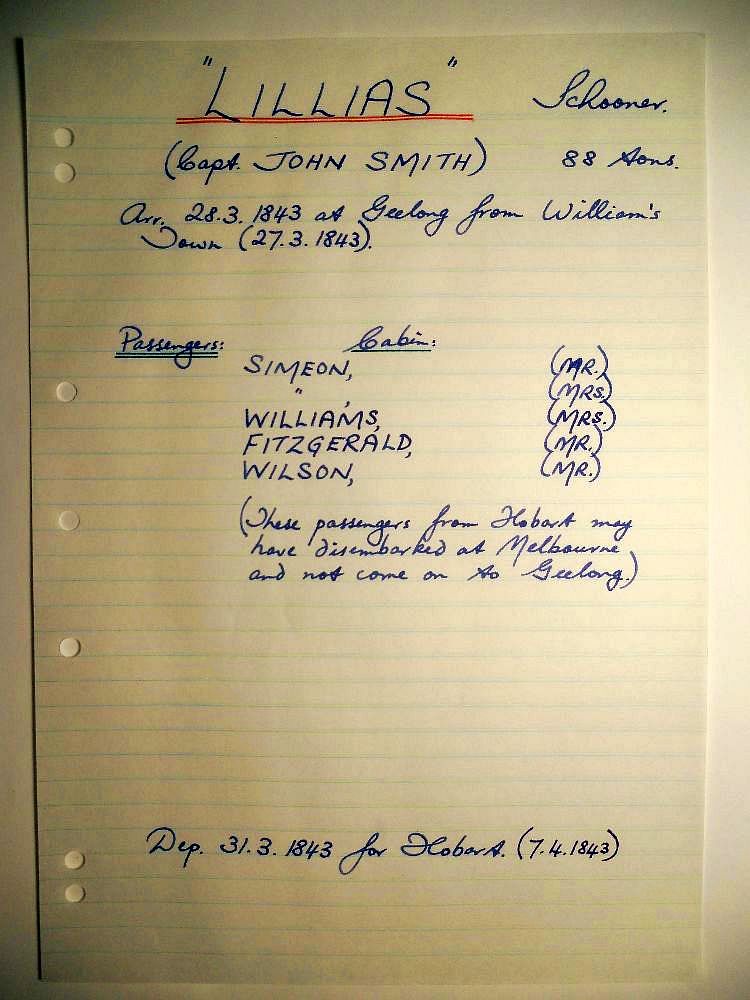 "LILLIAS" Schooner.
(Capt. JOHN SMITH) 88 tons.
Arr. 28.3.1843 at Geelong from William's
Town (27.3.1843).
Passengers: Cabin:
SIMEON, (MR.)
" , (MRS.)
WILLIAMS, (MRS.)
FITZGERALD, (MR.)
WILSON, (MR.)
(These passengers from Hobart may
have disembarked at Melbourne
and not come on to Geelong.)
Dep. 31.3.1843 for Hobart. (7.4.1843)